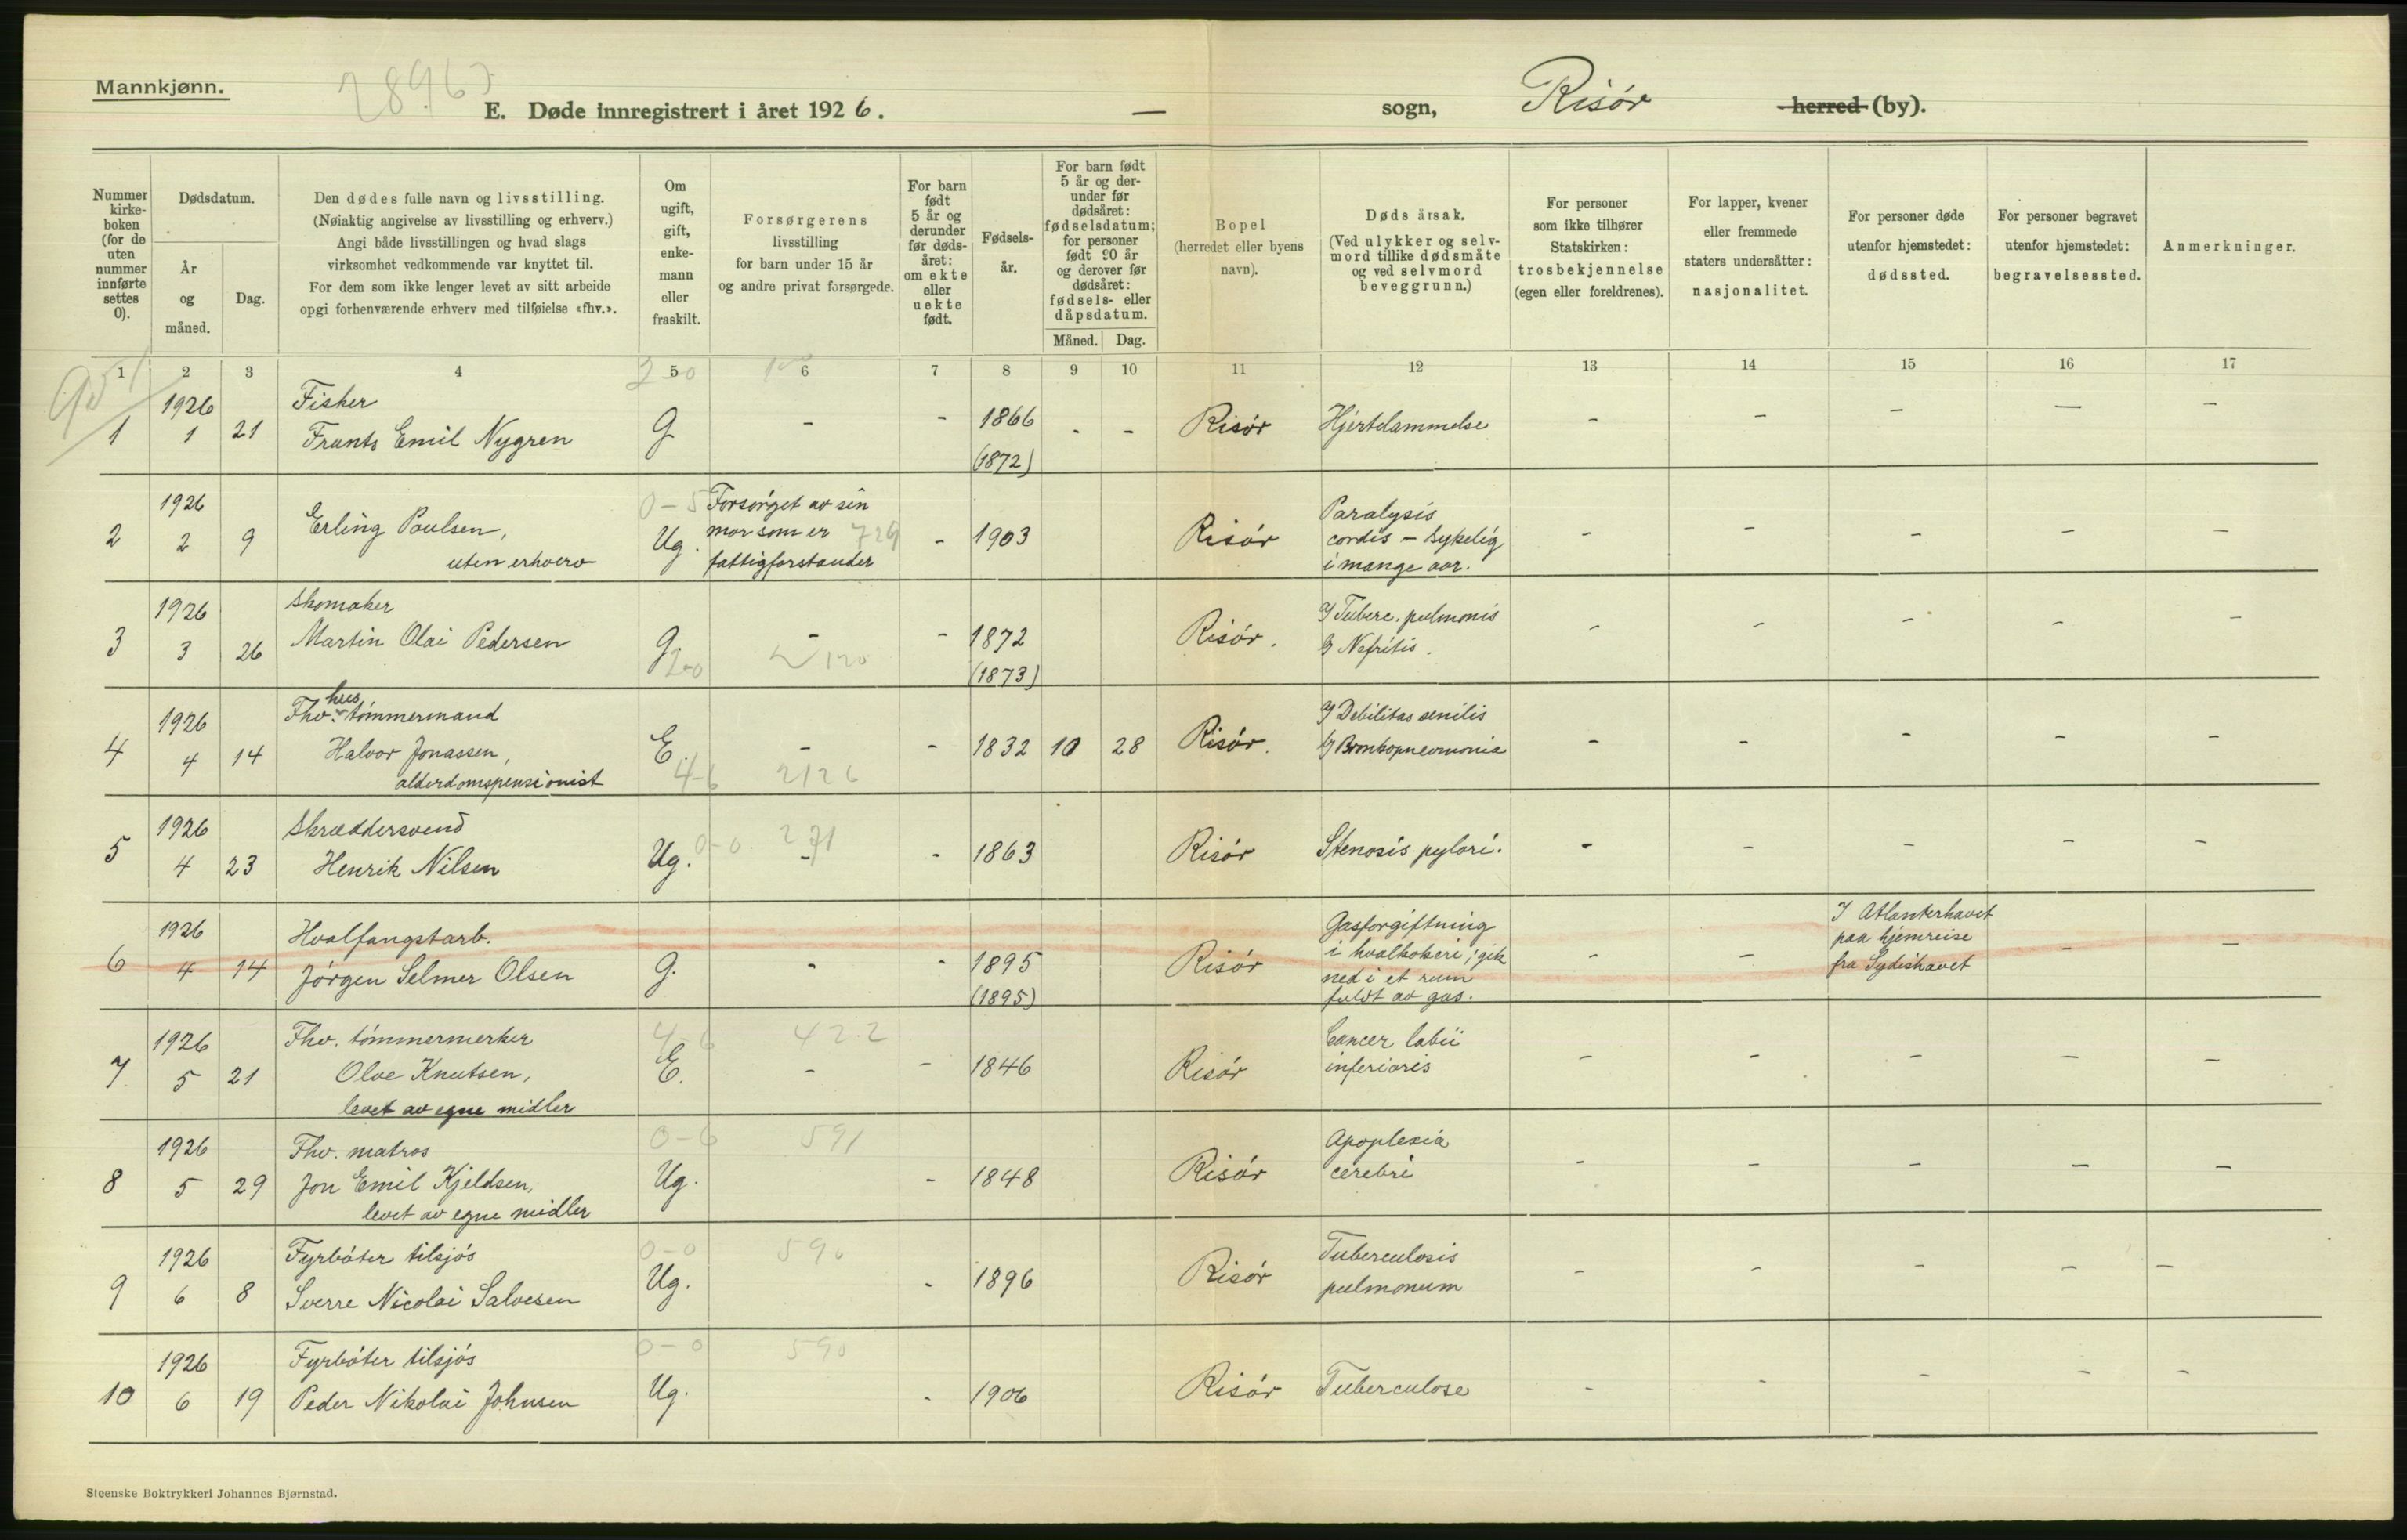 Mannkjønn.
28967
E. Døde innregistrert i året 1926. — sogn, Risör herred (by).
Nummer kirke-boken (for de uten nummer innførte settes 0).
Dødsdatum.
År og måned.
Dag.
Den dødes fulle navn og livsstilling.
(Nøiaktig angivelse av livsstilling og erhverv.)
Angi både livsstillingen og hvad slags
virksomhet vedkommende var knyttet til.
For dem som ikke lenger levet av sitt arbeide
opgi forhenværende erhverv med tilføielse «fhv.».
Om ugift, gift, enke-mann eller fraskilt.
Forsørgerens
livsstilling
for barn under 15 år
og andre privat forsørgede.
For barn født 5 år og derunder før døds-året: om ekte eller uekte født.
Fødsels-år.
For barn født 5 år og der-under før dødsåret: fødselsdatum; for personer født 90 år og derover før dødsåret: fødsels- eller dåpsdatum.
Måned. Dag.
Bopel
(herredet eller byens
navn).
Dødsårsak.
(Ved ulykker og selv-
mord tillike dødsmåte
og ved selvmord
beveggrunn.)
For personer
som ikke tilhører
Statskirken:
trosbekjennelse
(egen eller foreldrenes).
For lapper, kvener
eller fremmede
staters undersåtter:
nasjonalitet.
For personer døde
utenfor hjemstedet:
dødssted.
For personer begravet
utenfor hjemstedet:
begravelsessted.
Anmerkninger.
1 2 3 4 5 6 7 8 9 10 11 12 13 14 15 16 17
1 1926 1 21 Fisker
Frants Emil Nygren G - - 1866 - - Risör Hjertelammelse - - - — -
(1872)
2 1926 2 9 Erling Poulsen,
uten erhverv 0-5 Ug. Forsörget av sin
mor som er 729
fattigforstander - 1903 Risör Paralysis
cordis - Sykelig
i mange aar. - - - - -
3 1926 3 26 Skomaker
Martin Olai Pedersen G. 2-0 - 120 - 1872 Risör. a/ Tuberc. pulmonis
b/ Nefritis. - - - - -
(1873)
4 1926 4 14 Fhv. hus-tömmermand
Halvor Jonassen,
alderdomspensionist E. 4-6 - 2126 - 1832 10 28 Risör. a/ Debilitas senilis
b/ Bronkopneumonia - - - - -
5 1926 4 23 Skræddersvend
Henrik Nilsen Ug. 0-0 271 - - 1863 Risör Stenosis pylori. - - - - -
6 1926 4 14 Hvalfangstarb.
Jörgen Selmer Olsen G. - - 1895 Risör Gasforgiftning
i hvalkokeri; gik
ned i et rum
fuldt av gas. - - I Atlanterhavet
paa hjemreise
fra Sydishavet - -
(1895)
7 1926 5 21 Fhv. tömmermerker
Olve Knutsen,
levet av egne midler 4-6 E. 422 - - 1846 Risör Cancer labii
inferioris - - - - -
8 1926 5 29 Fhv. matros
Jon Emil Kjeldsen,
levet av egne midler 0-6 Ug. 591 - 1848 Risör Apoplexia
cerebri - - - - -
9 1926 6 8 Fyrböter tilsjös
Sverre Nicolai Salvesen 0-0 Ug. 590 - 1896 Risör Tuberculosis
pulmonum - - - - -
10 1926 6 19 Fyrböter tilsjös
Peder Nikolai Johnsen 0-0 Ug. 590 - 1906 Risör Tuberculose - - - - -
Steenske Boktrykkeri Johannes Bjørnstad.